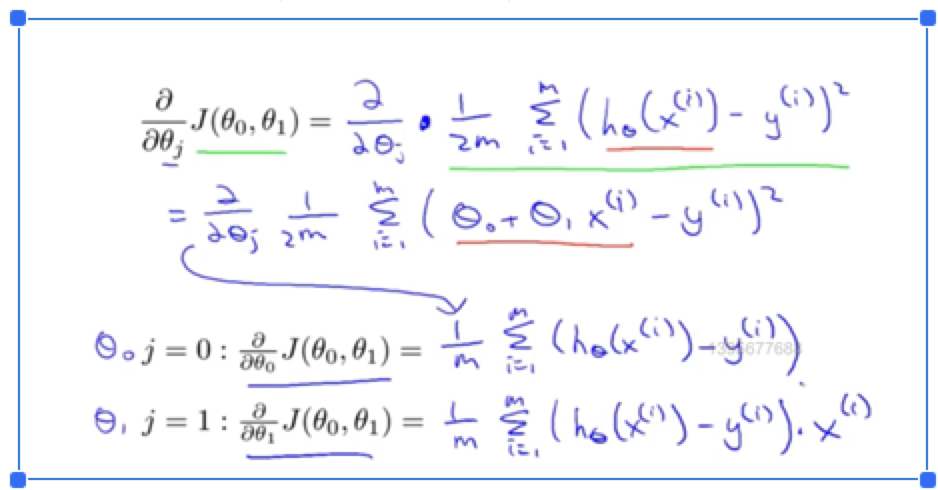 ∂/∂θⱼ J(θ₀, θ₁) = ∂/∂θⱼ · 1/2m Σᵢ₌₁ᵐ (hθ(x⁽ⁱ⁾) - y⁽ⁱ⁾)²
= ∂/∂θⱼ 1/2m Σᵢ₌₁ᵐ (θ₀ + θ₁ x⁽ⁱ⁾ - y⁽ⁱ⁾)²
θ₀ j = 0 : ∂/∂θ₀ J(θ₀, θ₁) = 1/m Σᵢ₌₁ᵐ (hθ(x⁽ⁱ⁾) - y⁽ⁱ⁾)
θ₁ j = 1 : ∂/∂θ₁ J(θ₀, θ₁) = 1/m Σᵢ₌₁ᵐ (hθ(x⁽ⁱ⁾) - y⁽ⁱ⁾) · x⁽ⁱ⁾